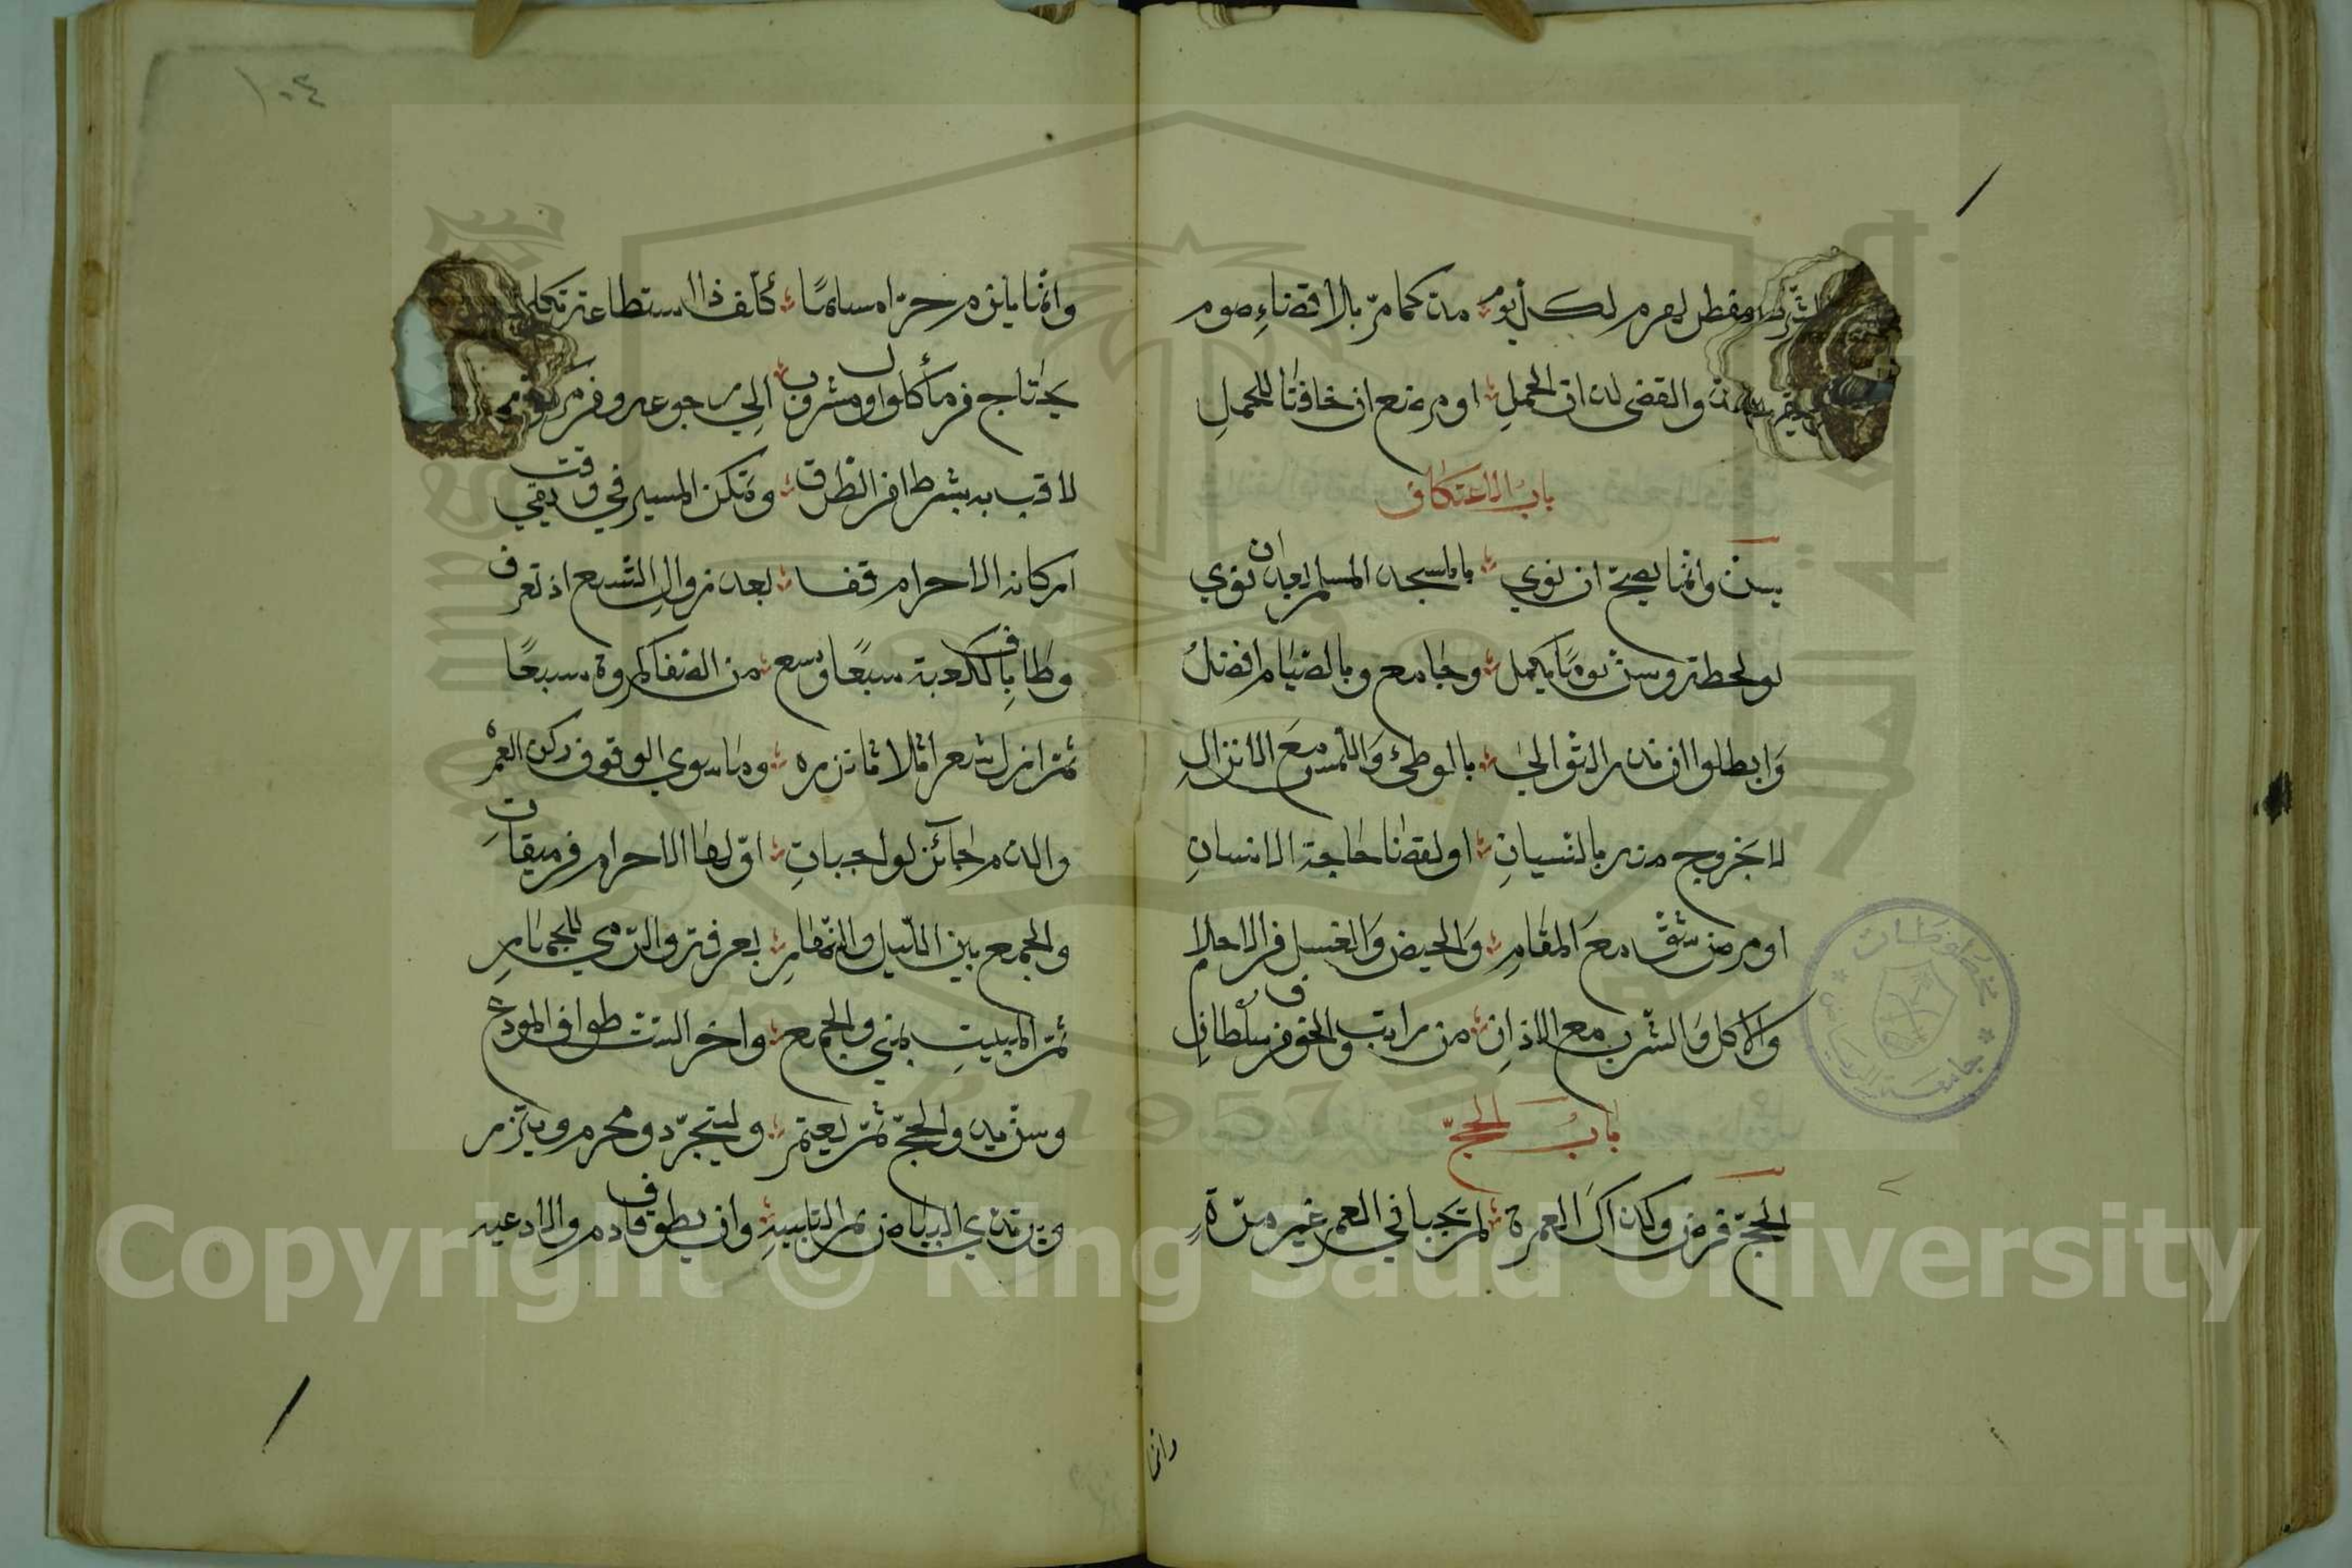 ومفطر لهرم لكل يوم مد كما مر بلا قضاء صوم
والقضى لذات الحمل او مرضع ان خافتا للحمل
باب الاعتكاف
يسن وانما يصح ان نوي بالمسجد المسلم بعد ان نوي
لو لحظة وسن يوما يكمل وجامع وبالصيام افضل
وابطلوا ان نذر التوالي بالوطئ واللمس مع الانزال
لا بخروج منه بالنسيان او لقضا حاجة الانسان
او مرض شق مع المقام والحيض والغسل في الاحلام
والاكل والشرب مع الاذان من راتب والخوف من سلطان
باب الحج
الحج فرض وكذاك العمرة لم يجبا في العمر غير مرة
وانما
١٠٤
وانما يلزم حرا مسلما كلف ذا استطاعة
يحتاج من مأكول او مشروب الي رجوعه ومن
لاق به بشرط امن الطرق ويمكن المسير في وقت بقي
اركانه الاحرام قف بعد زوال التسع اذ تعرف
وطاف بالكعبة سبعا وسع من الصفا لمروة سبعا
ثم ازل شعرا ثلاثا نزره وما سوي الوقوف ركن العمره
والدم جائز لواجبات اولها الاحرام من ميقات
والجمع بين الليل والنهار بعرفة والرمي للجمار
ثم المبيت بمني والجمع واخر الست طواف المودع
وسن بدء الحج ثم يعتمر وليتجرد محرم ويتزر
ويرتدي البياض ثم التلبيه وان يطوف قادم والادعيه
مخطوطات
جامعة الرياض
1957
Copyright © King Saud University